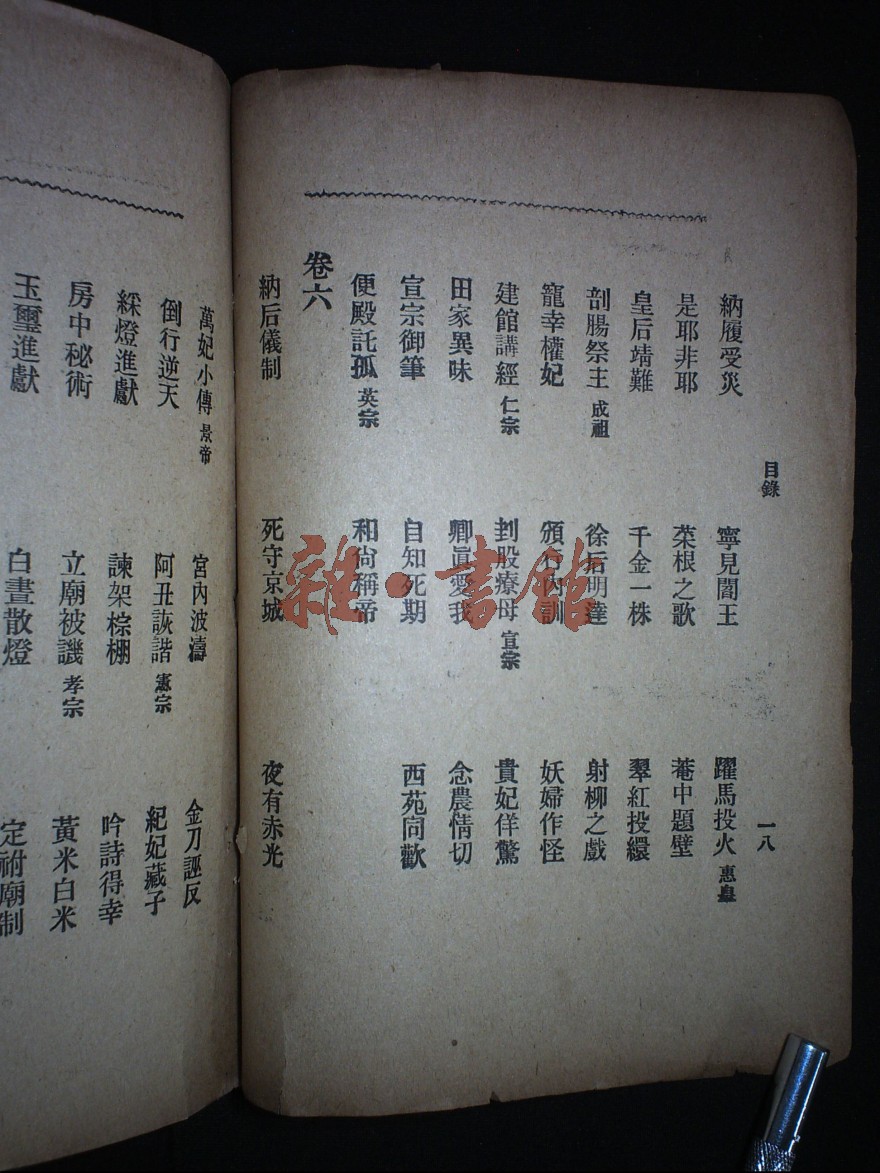 目錄
一八
納履受災 寧見閻王 躍馬投火 惠
是耶非耶 菜根之歌 菴中題壁
皇后靖難 千金一株 翠紅投繯
剖腸祭主 成祖 徐后明達 射柳之戲
寵幸權妃 頒行內訓 妖婦作怪
建館講經 仁宗 刲股療母 宣宗 貴妃佯驚
田家異味 卿眞愛我 念農情切
宣宗御筆 自知死期 西苑同歡
便殿託孤 英宗 和尙稱帝
卷六
納后儀制 死守京城 夜有赤光
萬妃小傳 景帝 宮內波濤 金刀誣反
倒行逆天 阿丑詼諧 憲宗 紀妃藏子
綵燈進獻 諫架棕棚 吟詩得幸
房中秘術 立廟被譏 孝宗 黃米白米
玉璽進獻 白晝散燈 定祔廟制
雜·書館